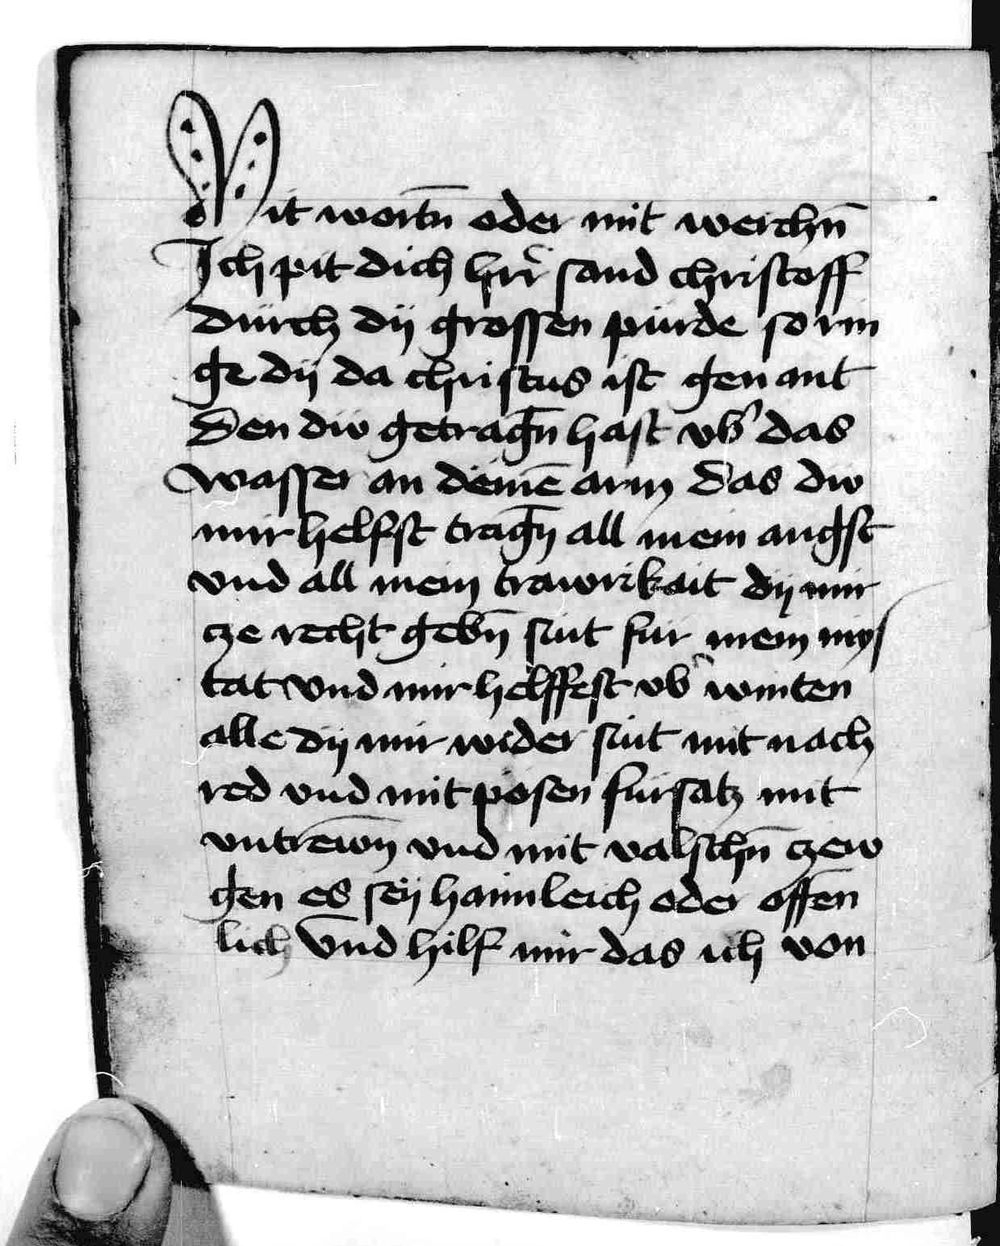 Mit wortn̄ oder mit werchn̄
Ich pit dich hr̄r sand christoff
durch dij grossen purde so rin
ge dij da christus ist genant
Den dw getragn̄ hast vb' das
wasser an deinē arm Das dw
mir helfst tragn̄ all mein angst
vnd all mein trawrikait dij mir
cze recht gebn̄ sint fur mein mys
tat vnd mir helffest vb' winten
alle dij mir wider sint mit nach
red vnd mit posen fursatz mit
vntrewn̄ vnd mit valschn̄ czew
gen es seÿ haimleich oder offen
lich Vnd hilf mir das ich von